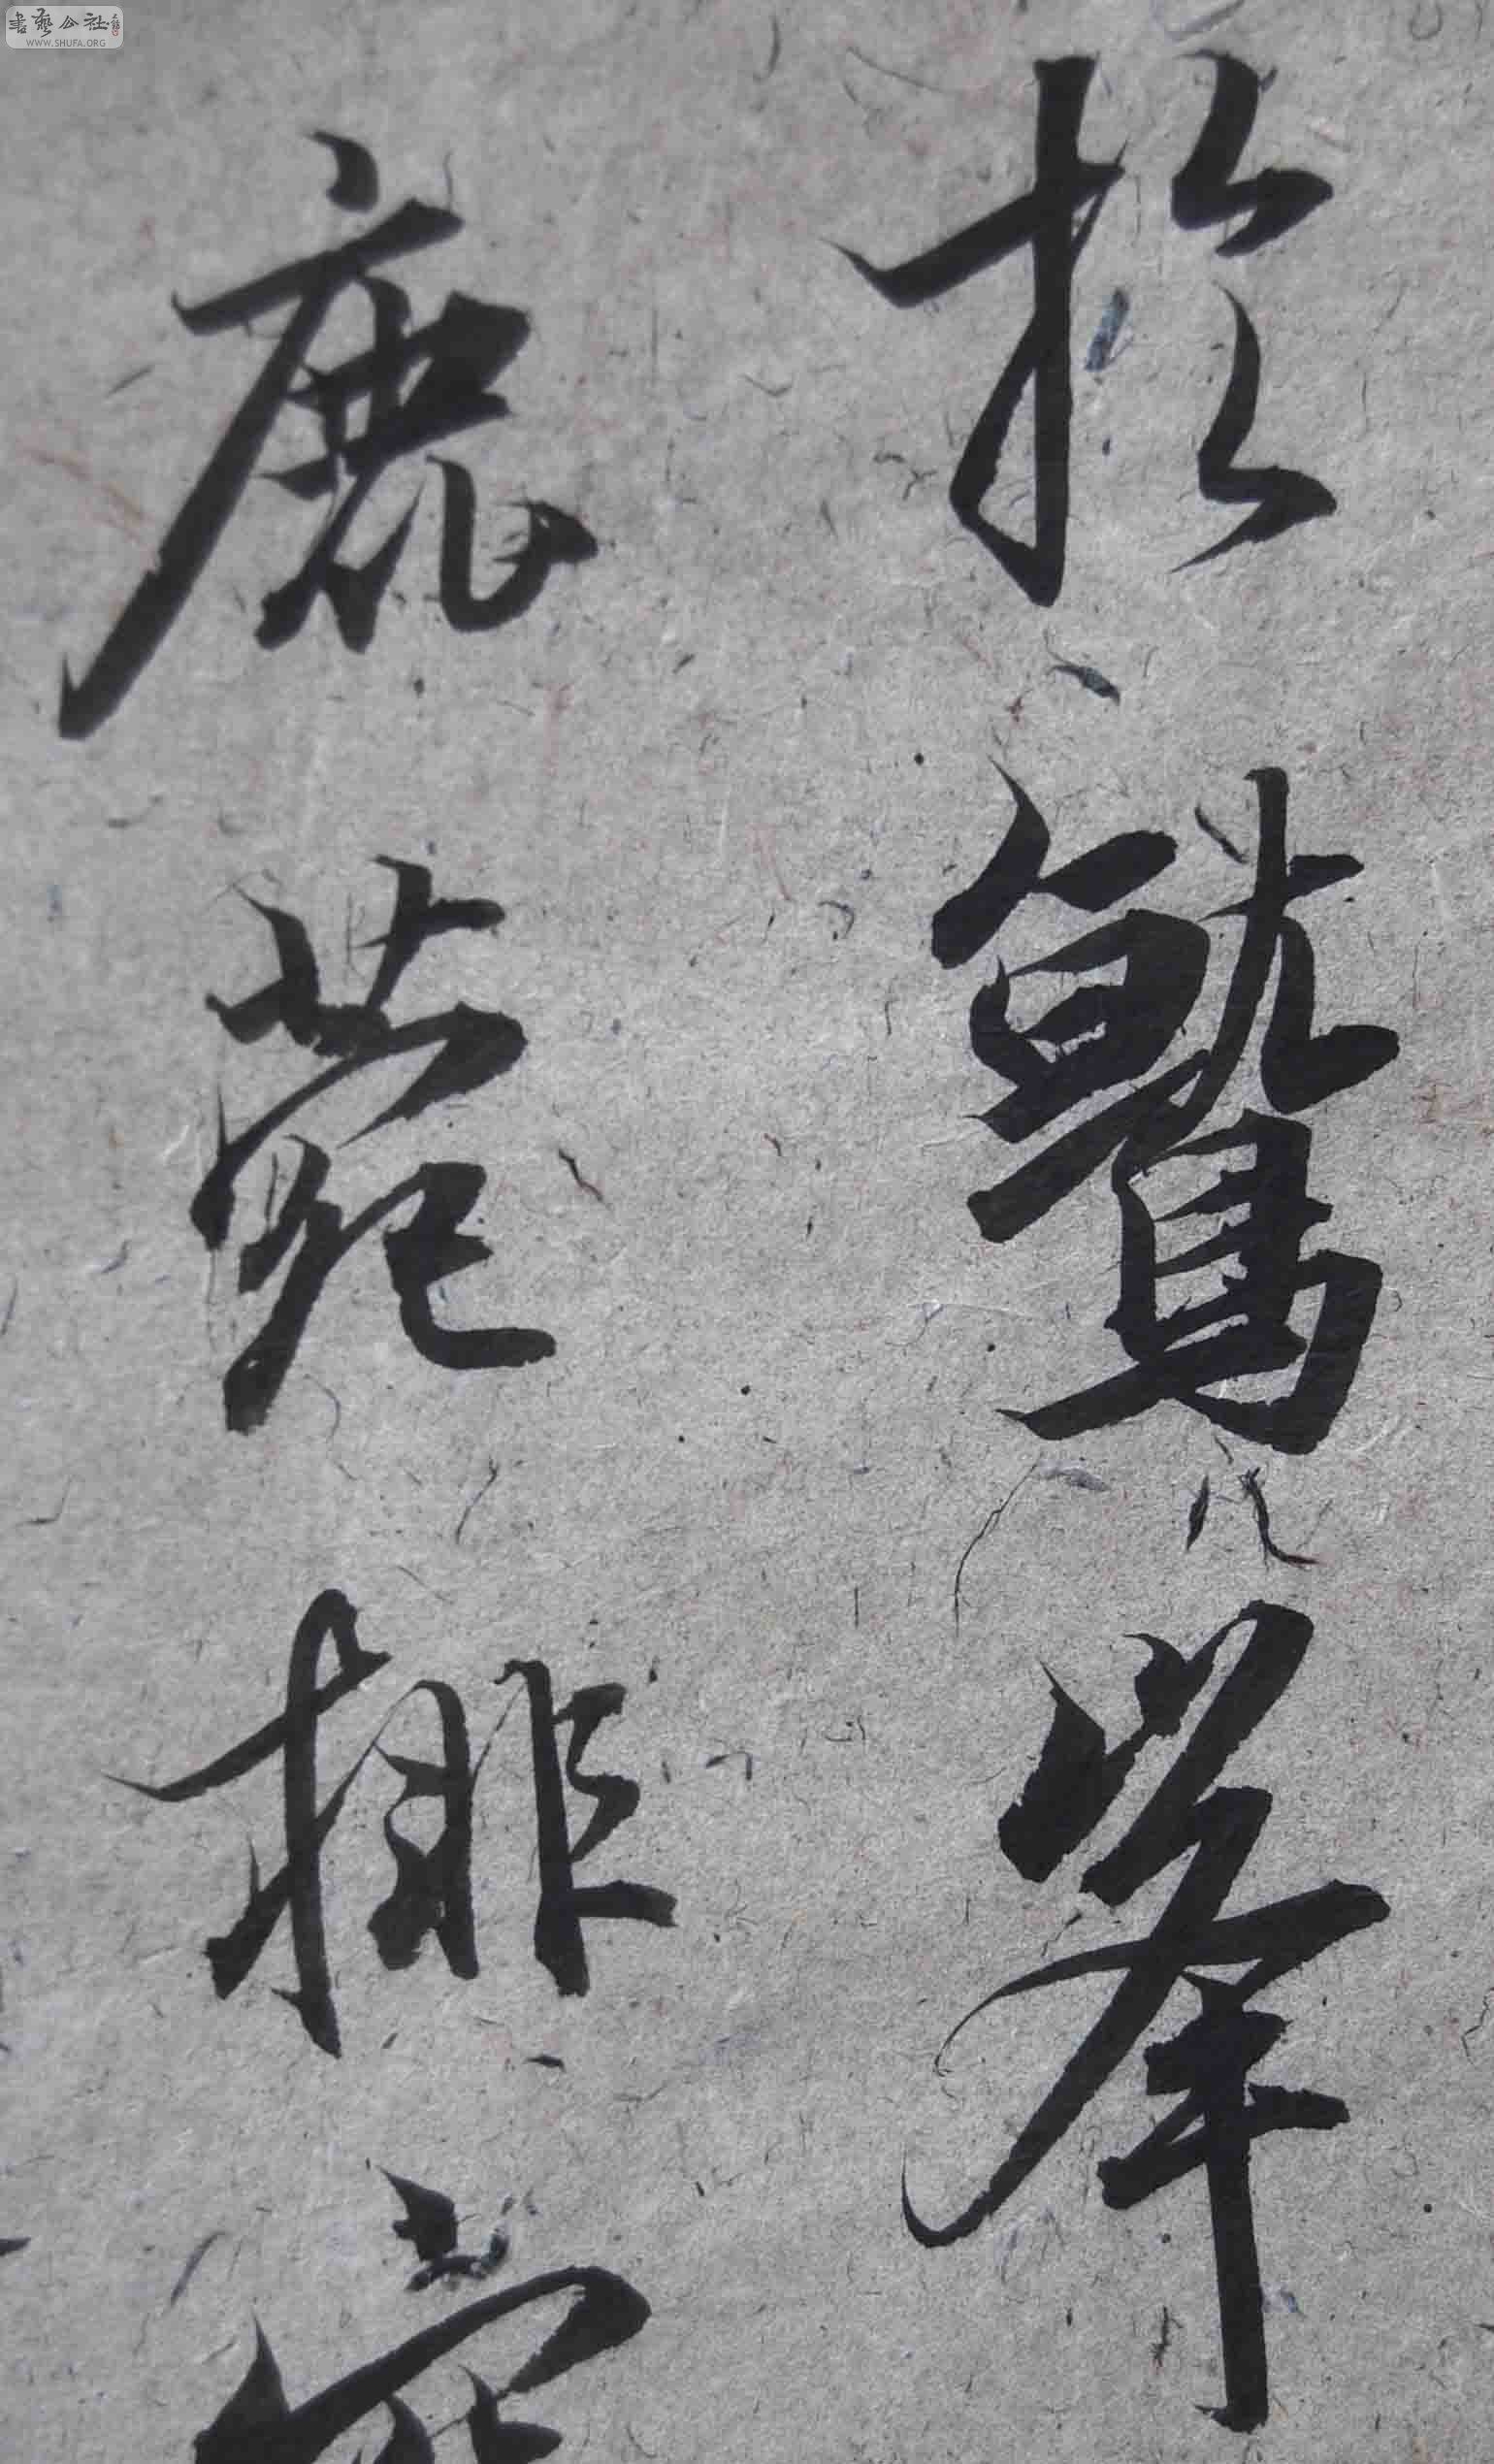 書藝公社
WWW.SHUFA.ORG
於鷲峯
鹿菀排